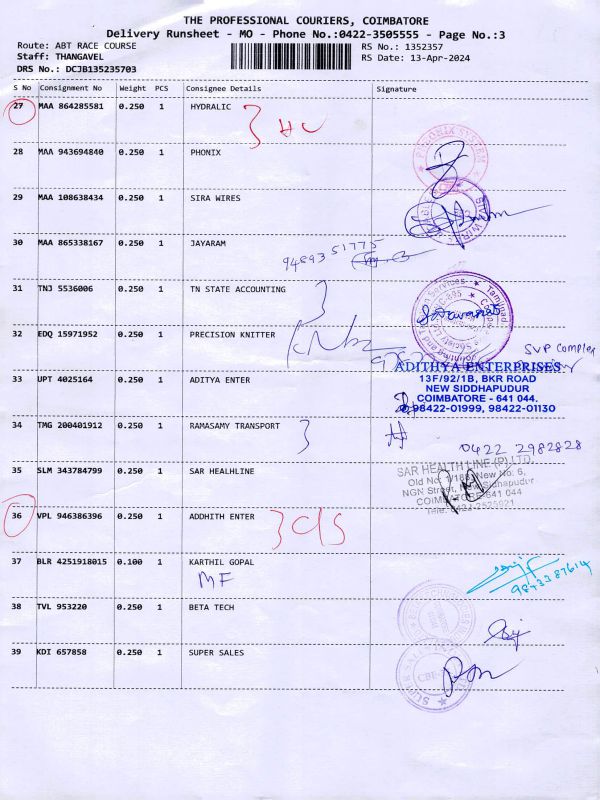 THE PROFESSIONAL COURIERS, COIMBATORE
Delivery Runsheet - MO - Phone No.:0422-3505555 - Page No.:3
Route: ABT RACE COURSE RS No.: 1352357
Staff: THANGAVEL RS Date: 13-Apr-2024
DRS No.: DCJB135235703
S No Consignment No Weight PCS Consignee Details Signature
27 MAA 864285581 0.250 1 HYDRALIC
28 MAA 943694840 0.250 1 PHONIX
PHONIX SYSTEM
29 MAA 108638434 0.250 1 SIRA WIRES
30 MAA 865338167 0.250 1 JAYARAM
9489351775
31 TNJ 5536006 0.250 1 TN STATE ACCOUNTING
32 EDQ 15971952 0.250 1 PRECISION KNITTER
SVP Complex
33 UPT 4025164 0.250 1 ADITYA ENTER
ADITHYA ENTERPRISES
13F/92/1B, BKR ROAD
NEW SIDDHAPUDUR
COIMBATORE - 641 044.
98422-01999, 98422-01130
34 TMG 200401912 0.250 1 RAMASAMY TRANSPORT
0422 2982828
35 SLM 343784799 0.250 1 SAR HEALHLINE
SAR HEALTH LINE (P) LTD.
Old No. New No. 6,
NGN Street, New Sidhapudur
COIMBATORE-641 044
36 VPL 946386396 0.250 1 ADDHITH ENTER
37 BLR 4251918015 0.100 1 KARTHIL GOPAL
MF
38 TVL 953220 0.250 1 BETA TECH
39 KDI 657858 0.250 1 SUPER SALES